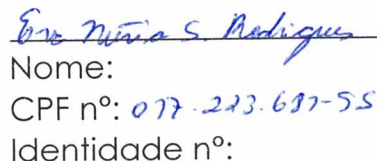 Núria S. Rodrigues
Nome:
CPF nº: 017.223.687-55
Identidade nº: